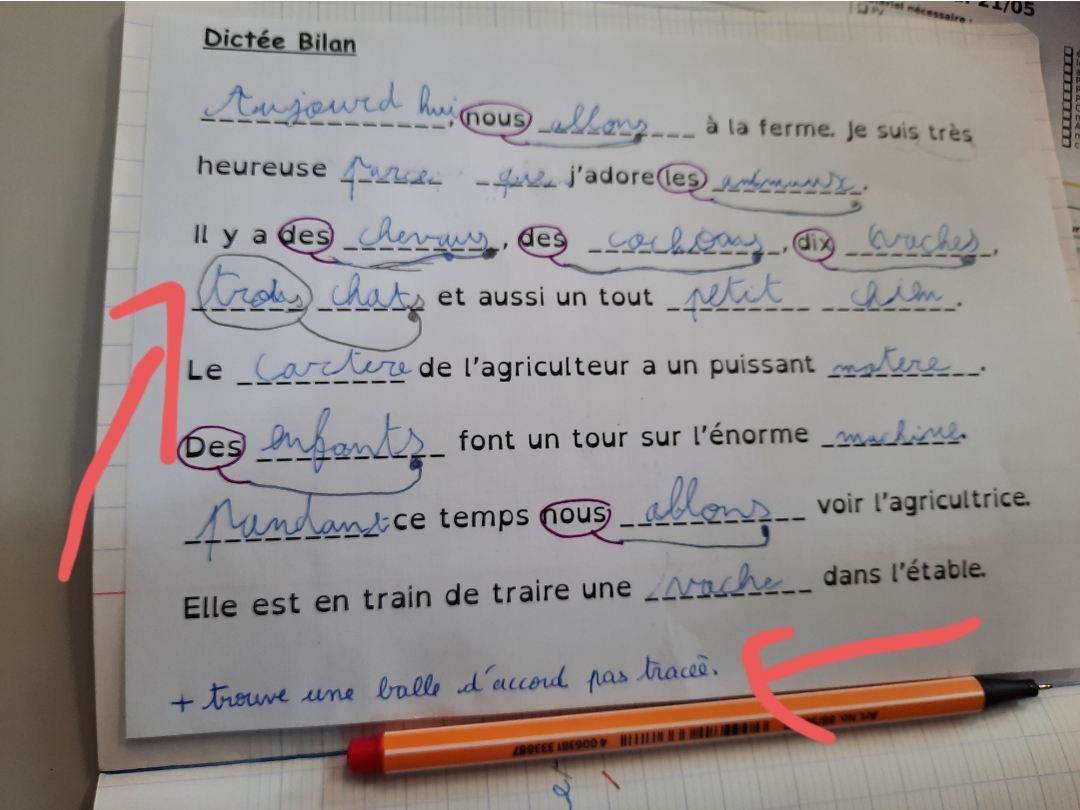 21/05
nécessaire :
Dictée Bilan
Aujourd hui, nous allons à la ferme. Je suis très
heureuse parce que j'adore les animaux.
Il y a des chevaux, des cochons, dix vaches,
trois chats et aussi un tout petit chien.
Le cartere de l'agriculteur a un puissant matere.
Des enfants font un tour sur l'énorme machine.
pandant ce temps nous allons voir l'agricultrice.
Elle est en train de traire une vache dans l'étable.
+ trouve une balle d'accord pas tracée.
4 006381 333887